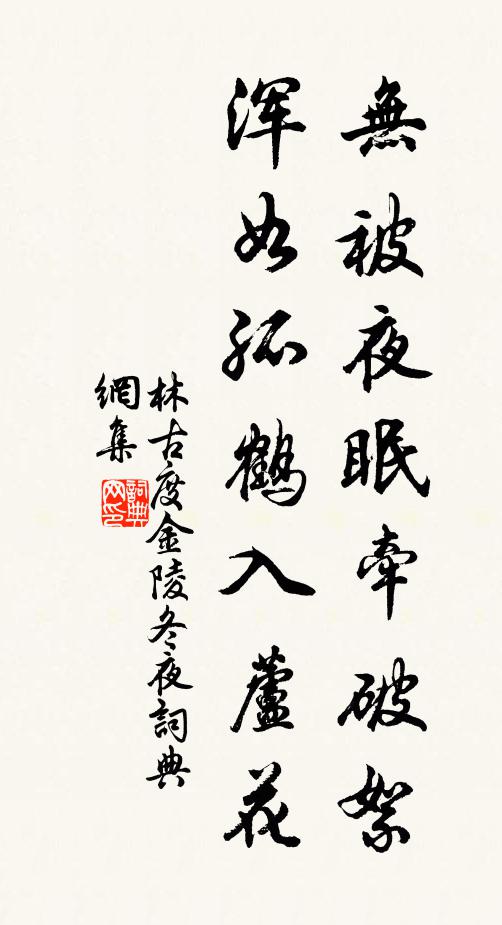 無被夜眠牽破絮
渾如孤鶴入蘆花
林古度金陵冬夜詞典
網集
詞典網印